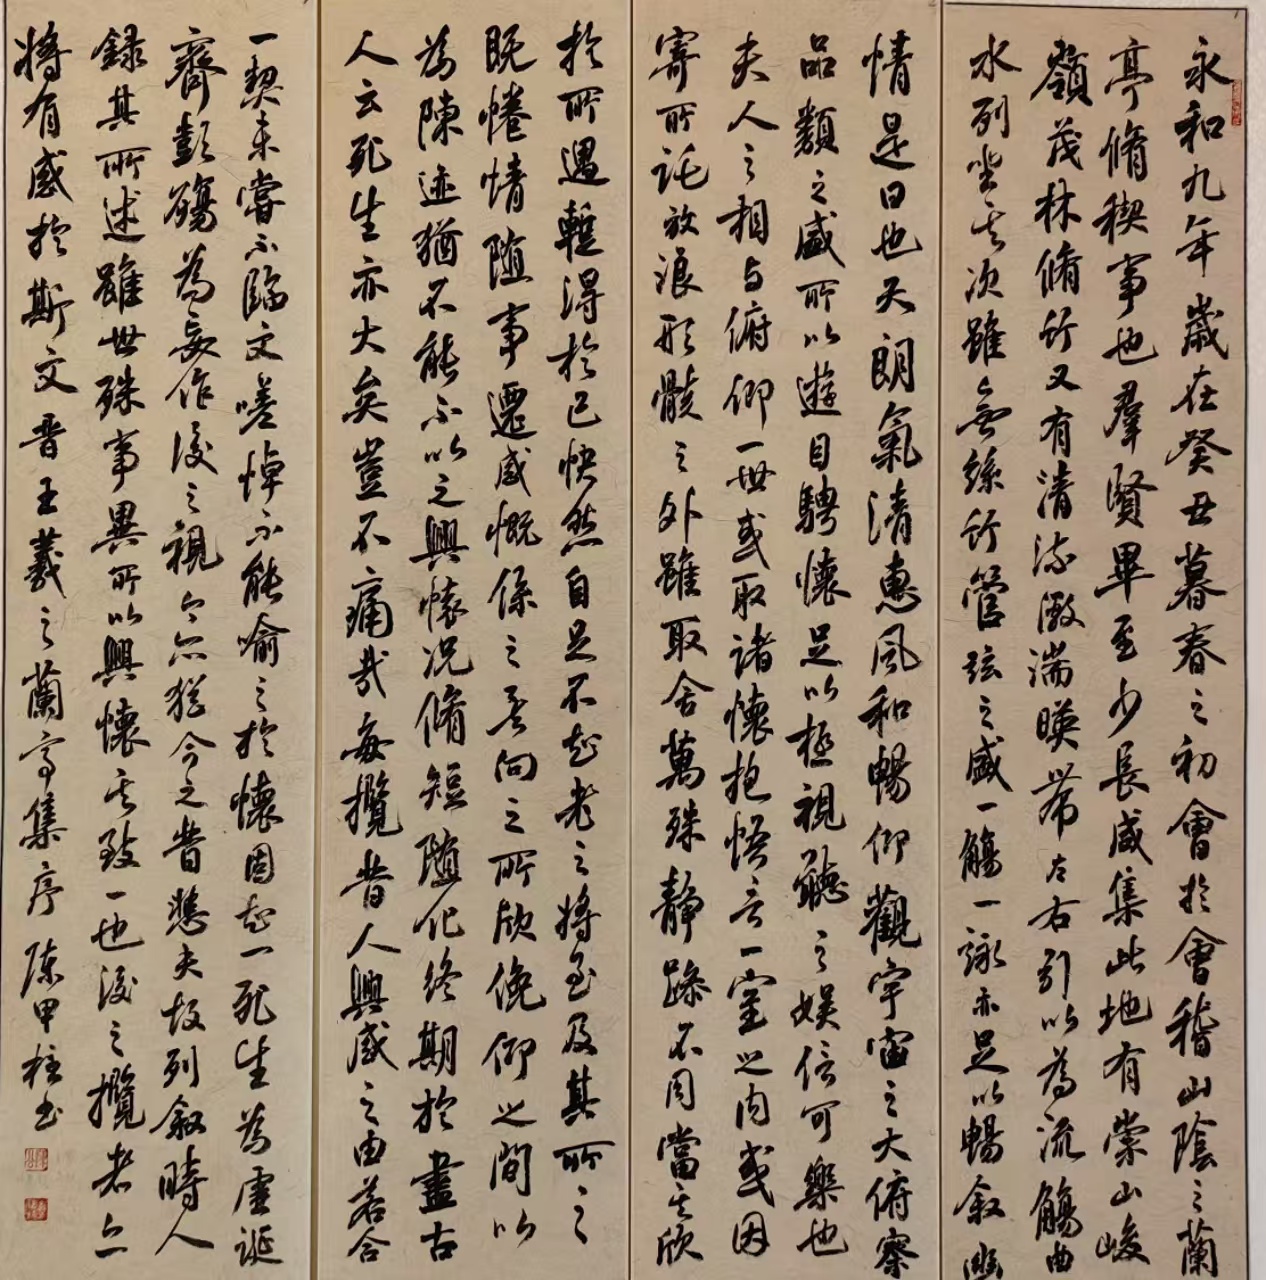 永和九年歲在癸丑暮春之初會於會稽山陰之蘭
亭脩稧事也羣賢畢至少長咸集此地有崇山峻
嶺茂林脩竹又有清流激湍暎帶左右引以為流觴曲
水列坐其次雖無絲竹管弦之盛一觴一詠亦足以暢叙幽
情是日也天朗氣清惠風和暢仰觀宇宙之大俯察
品類之盛所以遊目騁懷足以極視聽之娛信可樂也
夫人之相與俯仰一世或取諸懷抱悟言一室之內或因
寄所託放浪形骸之外雖取舍萬殊靜躁不同當其欣
於所遇暫得於己快然自足不知老之將至及其所之
既惓情隨事遷感慨係之矣向之所欣俛仰之間以
為陳迹猶不能不以之興懷況脩短隨化終期於盡古
人云死生亦大矣豈不痛哉每攬昔人興感之由若合
一契未嘗不臨文嗟悼不能喻之於懷固知一死生為虛誕
齊彭殤為妄作後之視今亦猶今之昔悲夫故列叙時人
錄其所述雖世殊事異所以興懷其致一也後之攬者亦
將有感於斯文晉王羲之蘭亭集序 陳甲柱書